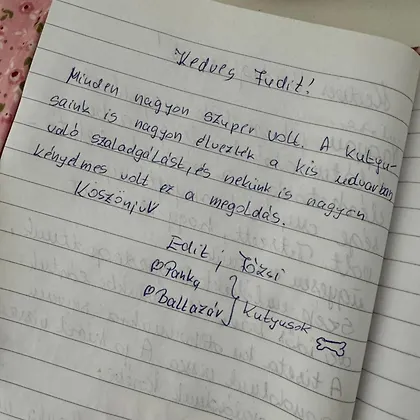 Kedves Judit!
Minden nagyon szuper volt. A kutyu-
saink is nagyon élvezték a kis udvarban
való szaladgálást, és nekünk is nagyon
kényelmes volt ez a megoldás.
Köszönjük
Edit, Józsi
Panka
Baltazár
Kutyusok